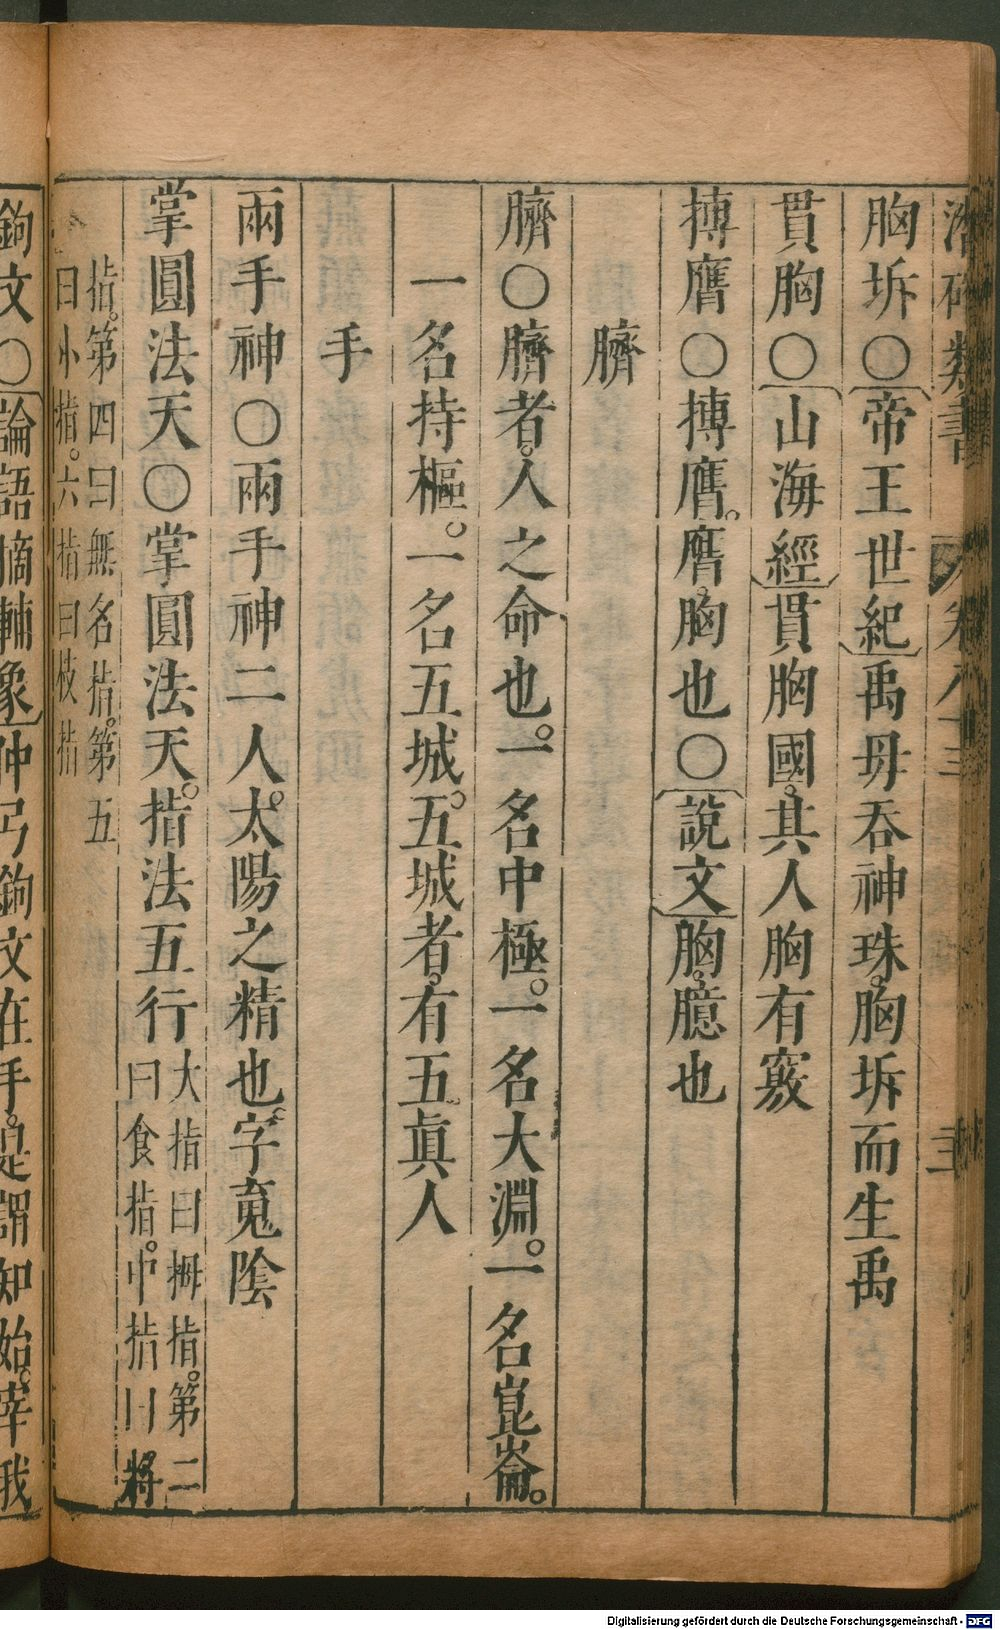 潛確類書 卷八十三 三
胸坼○帝王世紀禹母吞神珠。胸坼而生禹
貫胸○山海經貫胸國。其人胸有竅
搏膺○搏膺。膺胸也○說文胸。臆也
臍
臍○臍者。人之命也。一名中極。一名大淵。一名崑崙。
一名持樞。一名五城。五城者。有五眞人
手
兩手神○兩手神二人。太陽之。精也。字䰟陰
掌圓法天○掌圓法天。指法五行大指曰拇指。第二
曰食指。中指曰將
指。第四曰無名指。第五
曰小指。六指曰枝指
鉤文○論語摘輔象仲弓鉤文在手。是謂知始。宰我
Digitalisierung gefördert durch die Deutsche Forschungsgemeinschaft - DFG